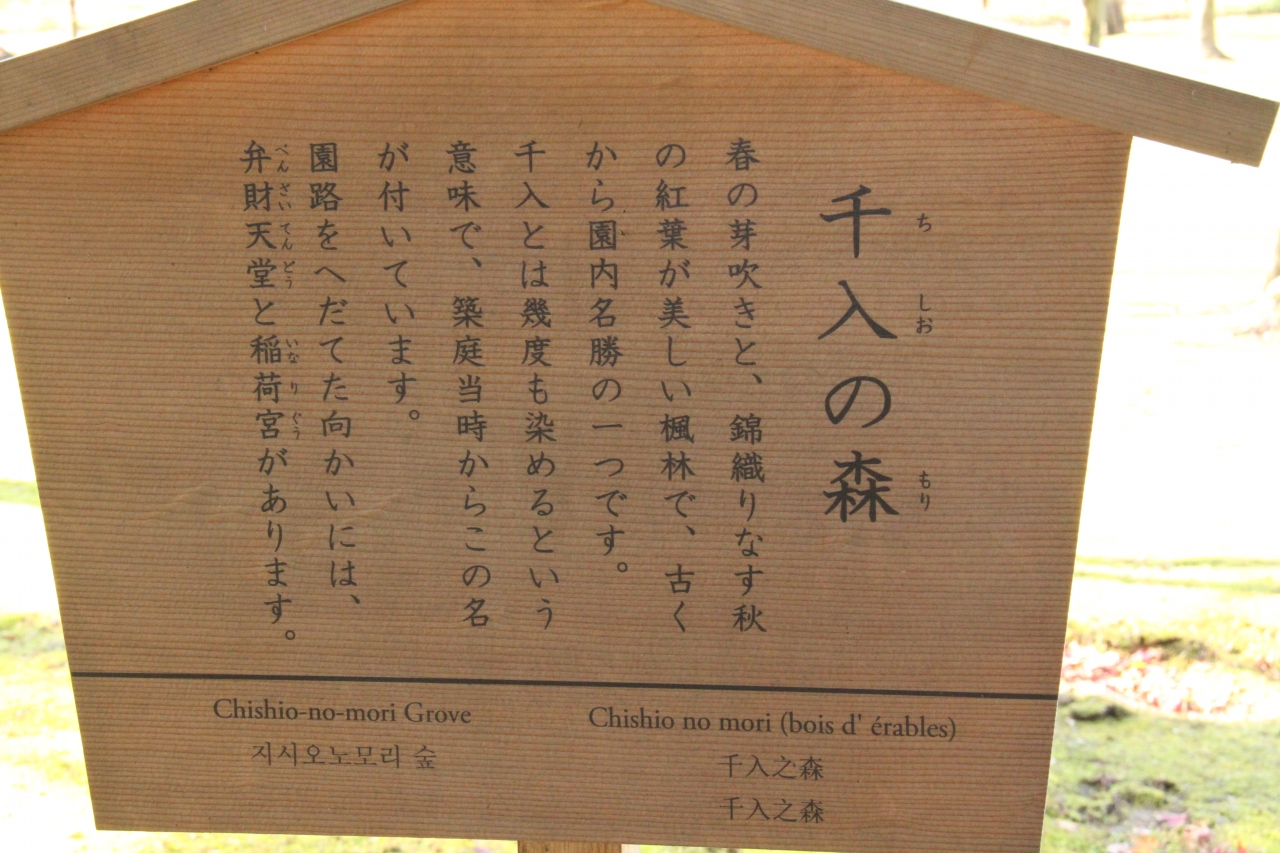 千入の森
ち
しお
もり
春の芽吹きと、錦織りなす秋
の紅葉が美しい楓林で、古く
から園内名勝の一つです。
千入とは幾度も染めるという
意味で、築庭当時からこの名
が付いています。
園路をへだてた向かいには、
弁財天堂と稲荷宮があります。
べんざいてんどう
いなりぐう
Chishio-no-mori Grove
지시오노모리 숲
Chishio no mori (bois d' érables)
千入之森
千入之森